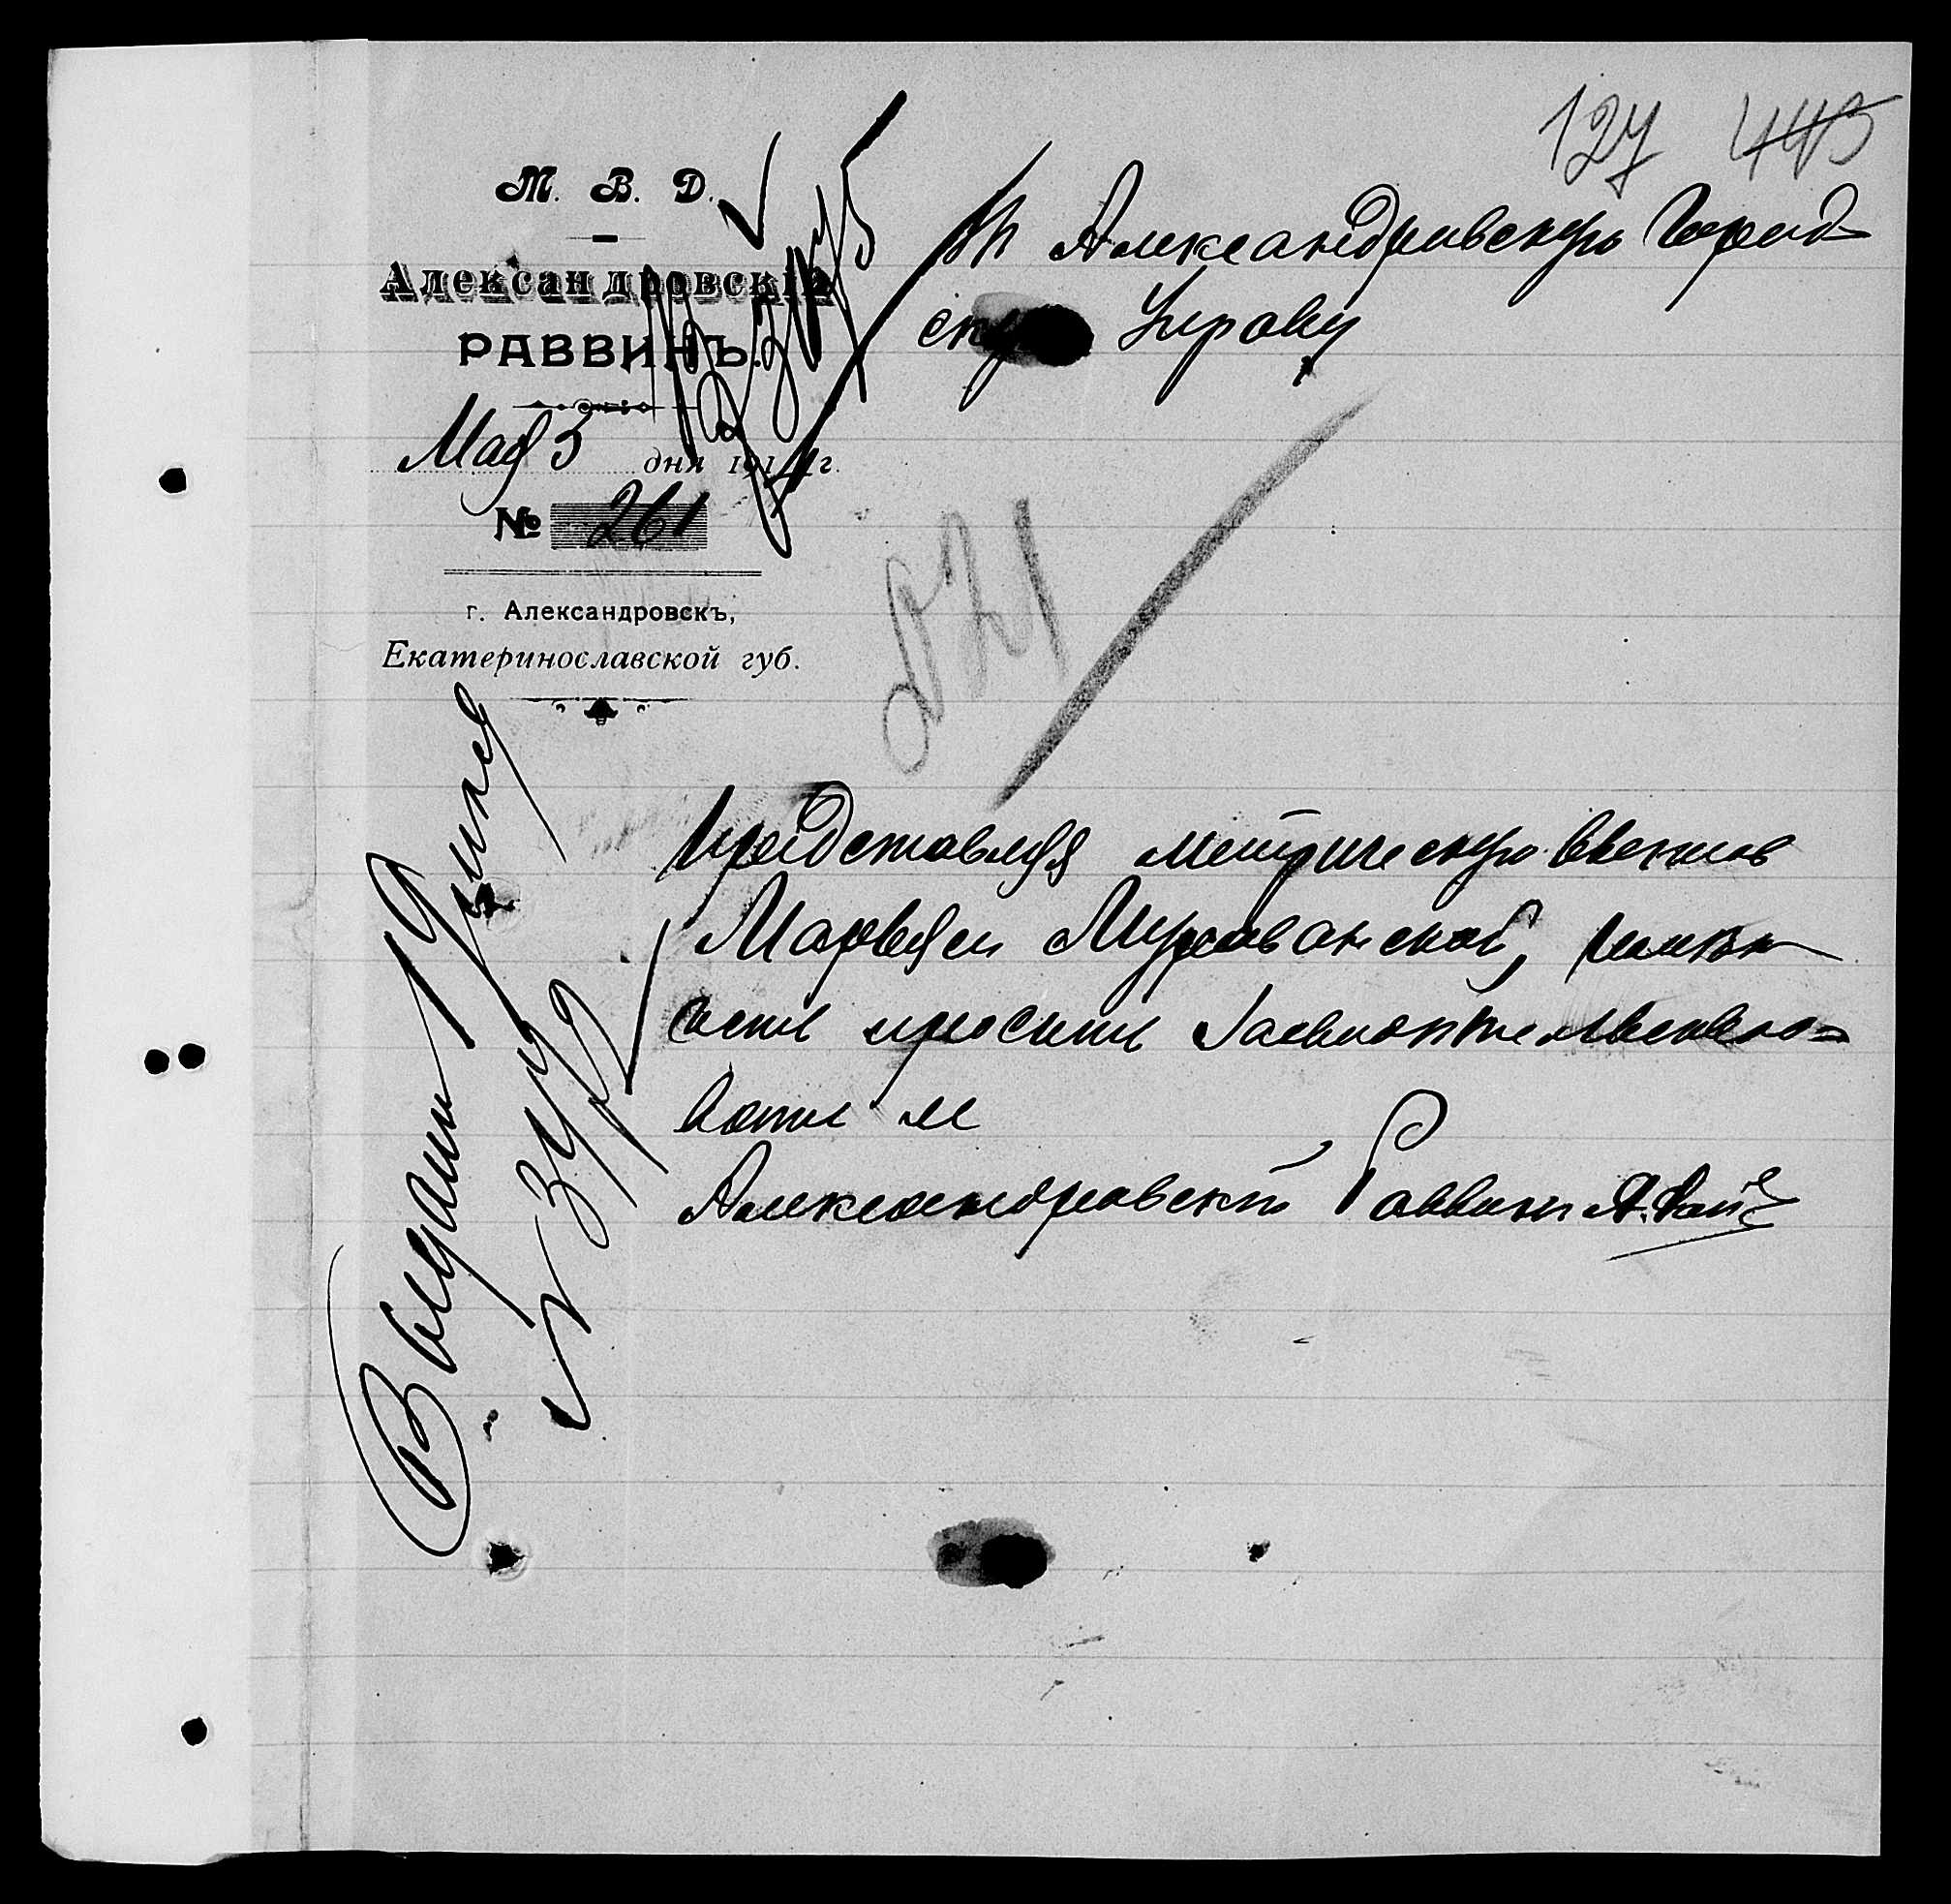 127 445
М. В. Д.
Александровскій
РАВВИНЪ.
Мая 5 дня 1911 г.
№ 261
г. Александровскъ,
Екатеринославской губ.
Въ Александровскую Город-
скую Управу
Представляя метрическую выпись
Марьяси Мурованской, имѣю
честь просить засвидѣтельство-
вать
Александровскій Раввинъ
Выдать 19
№ 3472